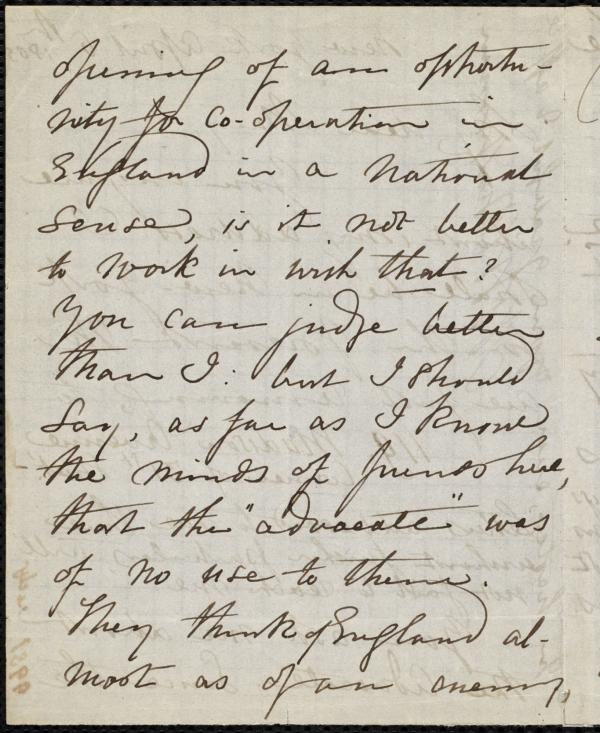 opening of an opportu-
nity for co-operation in
England in a national
sense, is it not better
to work in with that?
You can judge better
than I: but I should
say, as far as I know
the minds of friends here,
that the "advocate" was
of no use to them.
They think of England al-
most as of an enemy,